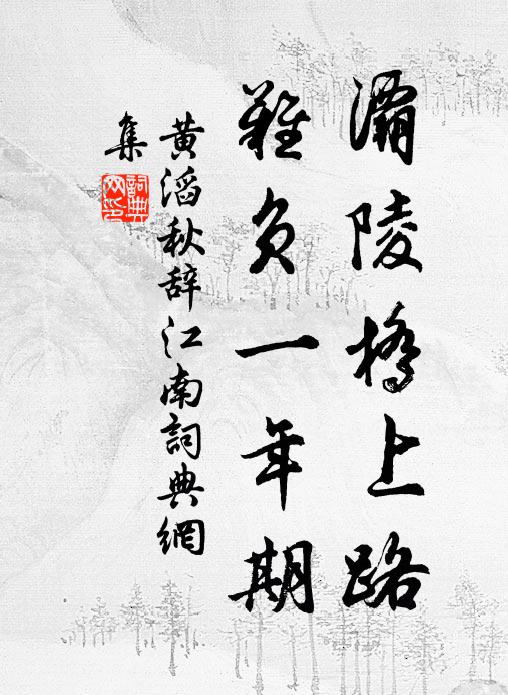 灞陵橋上路
難負一年期
黃滔秋辞江南詞典網
集
詞典
网印